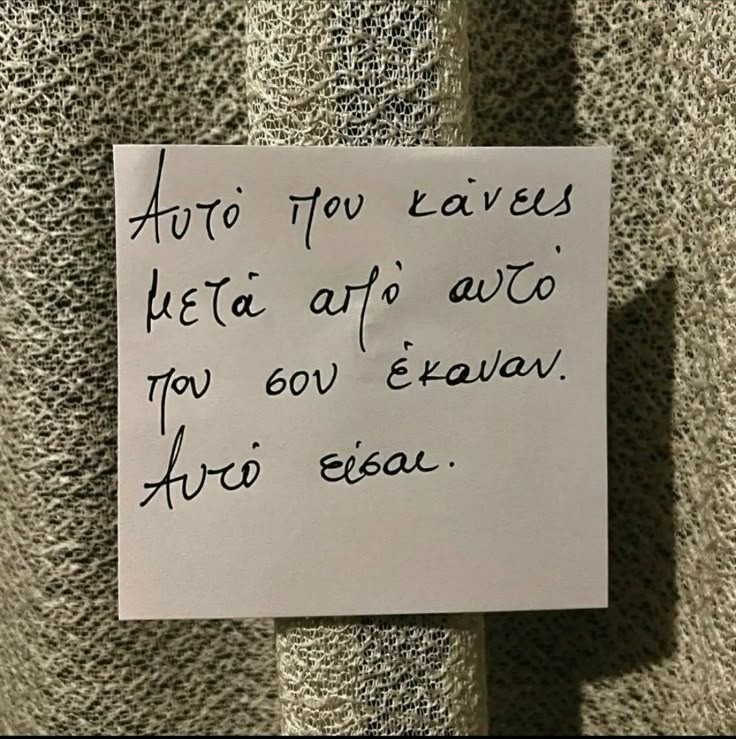 Αυτό που κάνεις
μετά από αυτό
που σου έκαναν.
Αυτό είσαι.